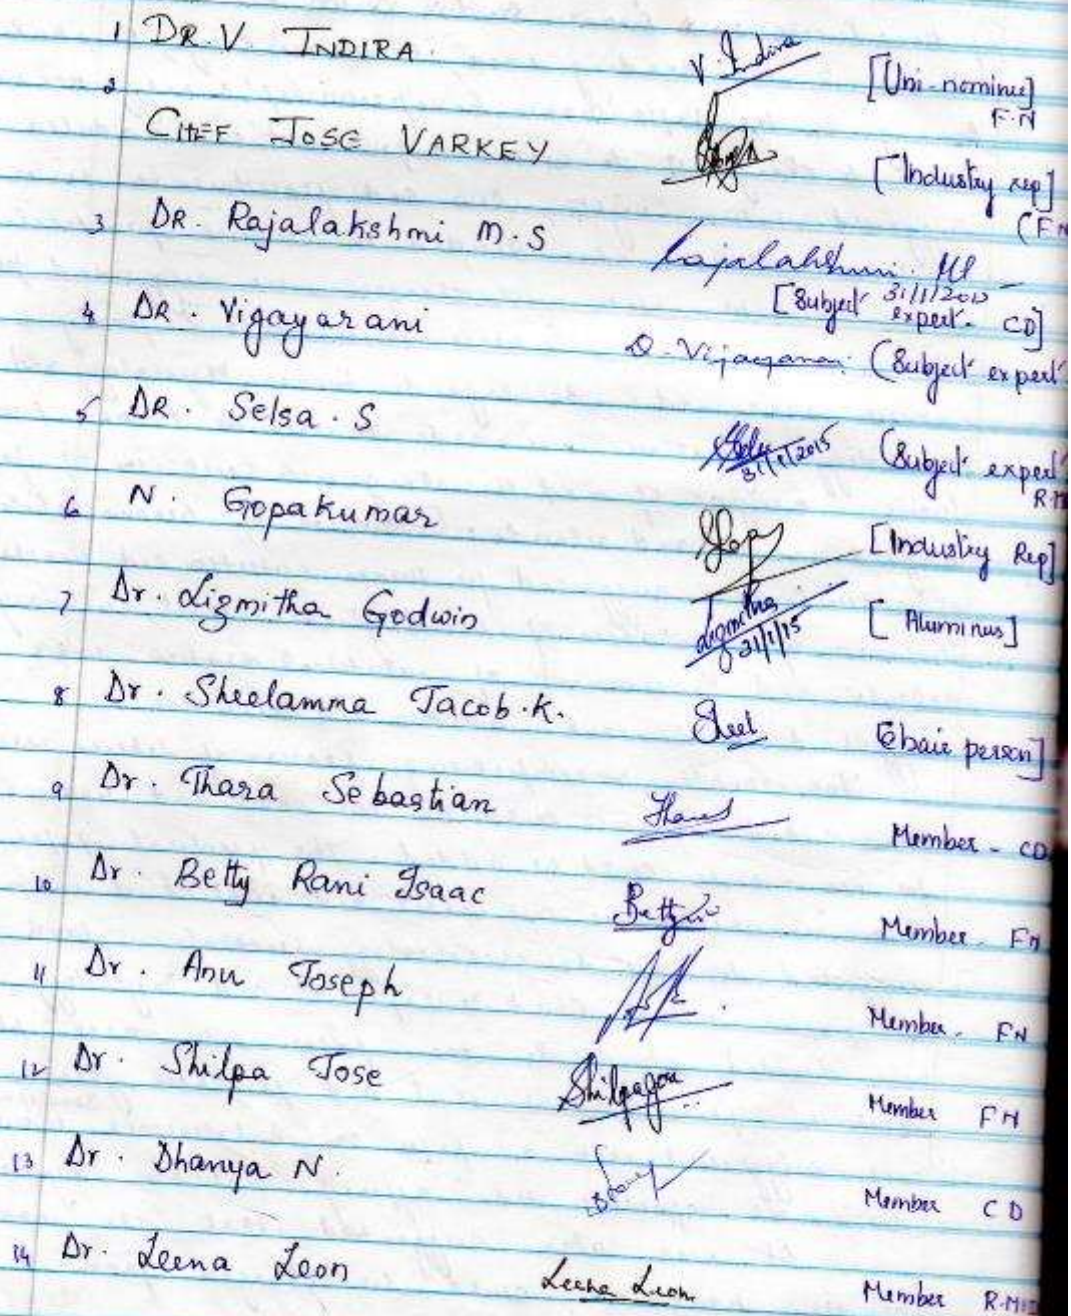 1 DR. V. INDIRA. V. Indira [Uni-nominee] F.N
2 CHEF JOSE VARKEY [Industry rep] (FN
3 DR. Rajalakshmi M.S Rajalakshmi. MS 31/1/2015 [Subject expert. CD]
4 DR. Vijayarani D. Vijayarani (Subject expert
5 DR. Selsa. S 31/1/2015 (Subject expert R.M
6 N. Gopakumar Gop [Industry Rep]
7 Dr. Lizmitha Godwin Lizmitha 31/1/15 [Aluminus]
8 Dr. Sheelamma Jacob.K. Sheel [Chair person]
9 Dr. Thara Sebastian Thara Member - CD
10 Dr. Betty Rani Isaac Betty Member - FN
11 Dr. Anu Joseph Member - FN
12 Dr. Shilpa Jose Shilpa Jose Member FN
13 Dr. Dhanya N. Member CD
14 Dr. Leena Leon Leena Leon Member R.M